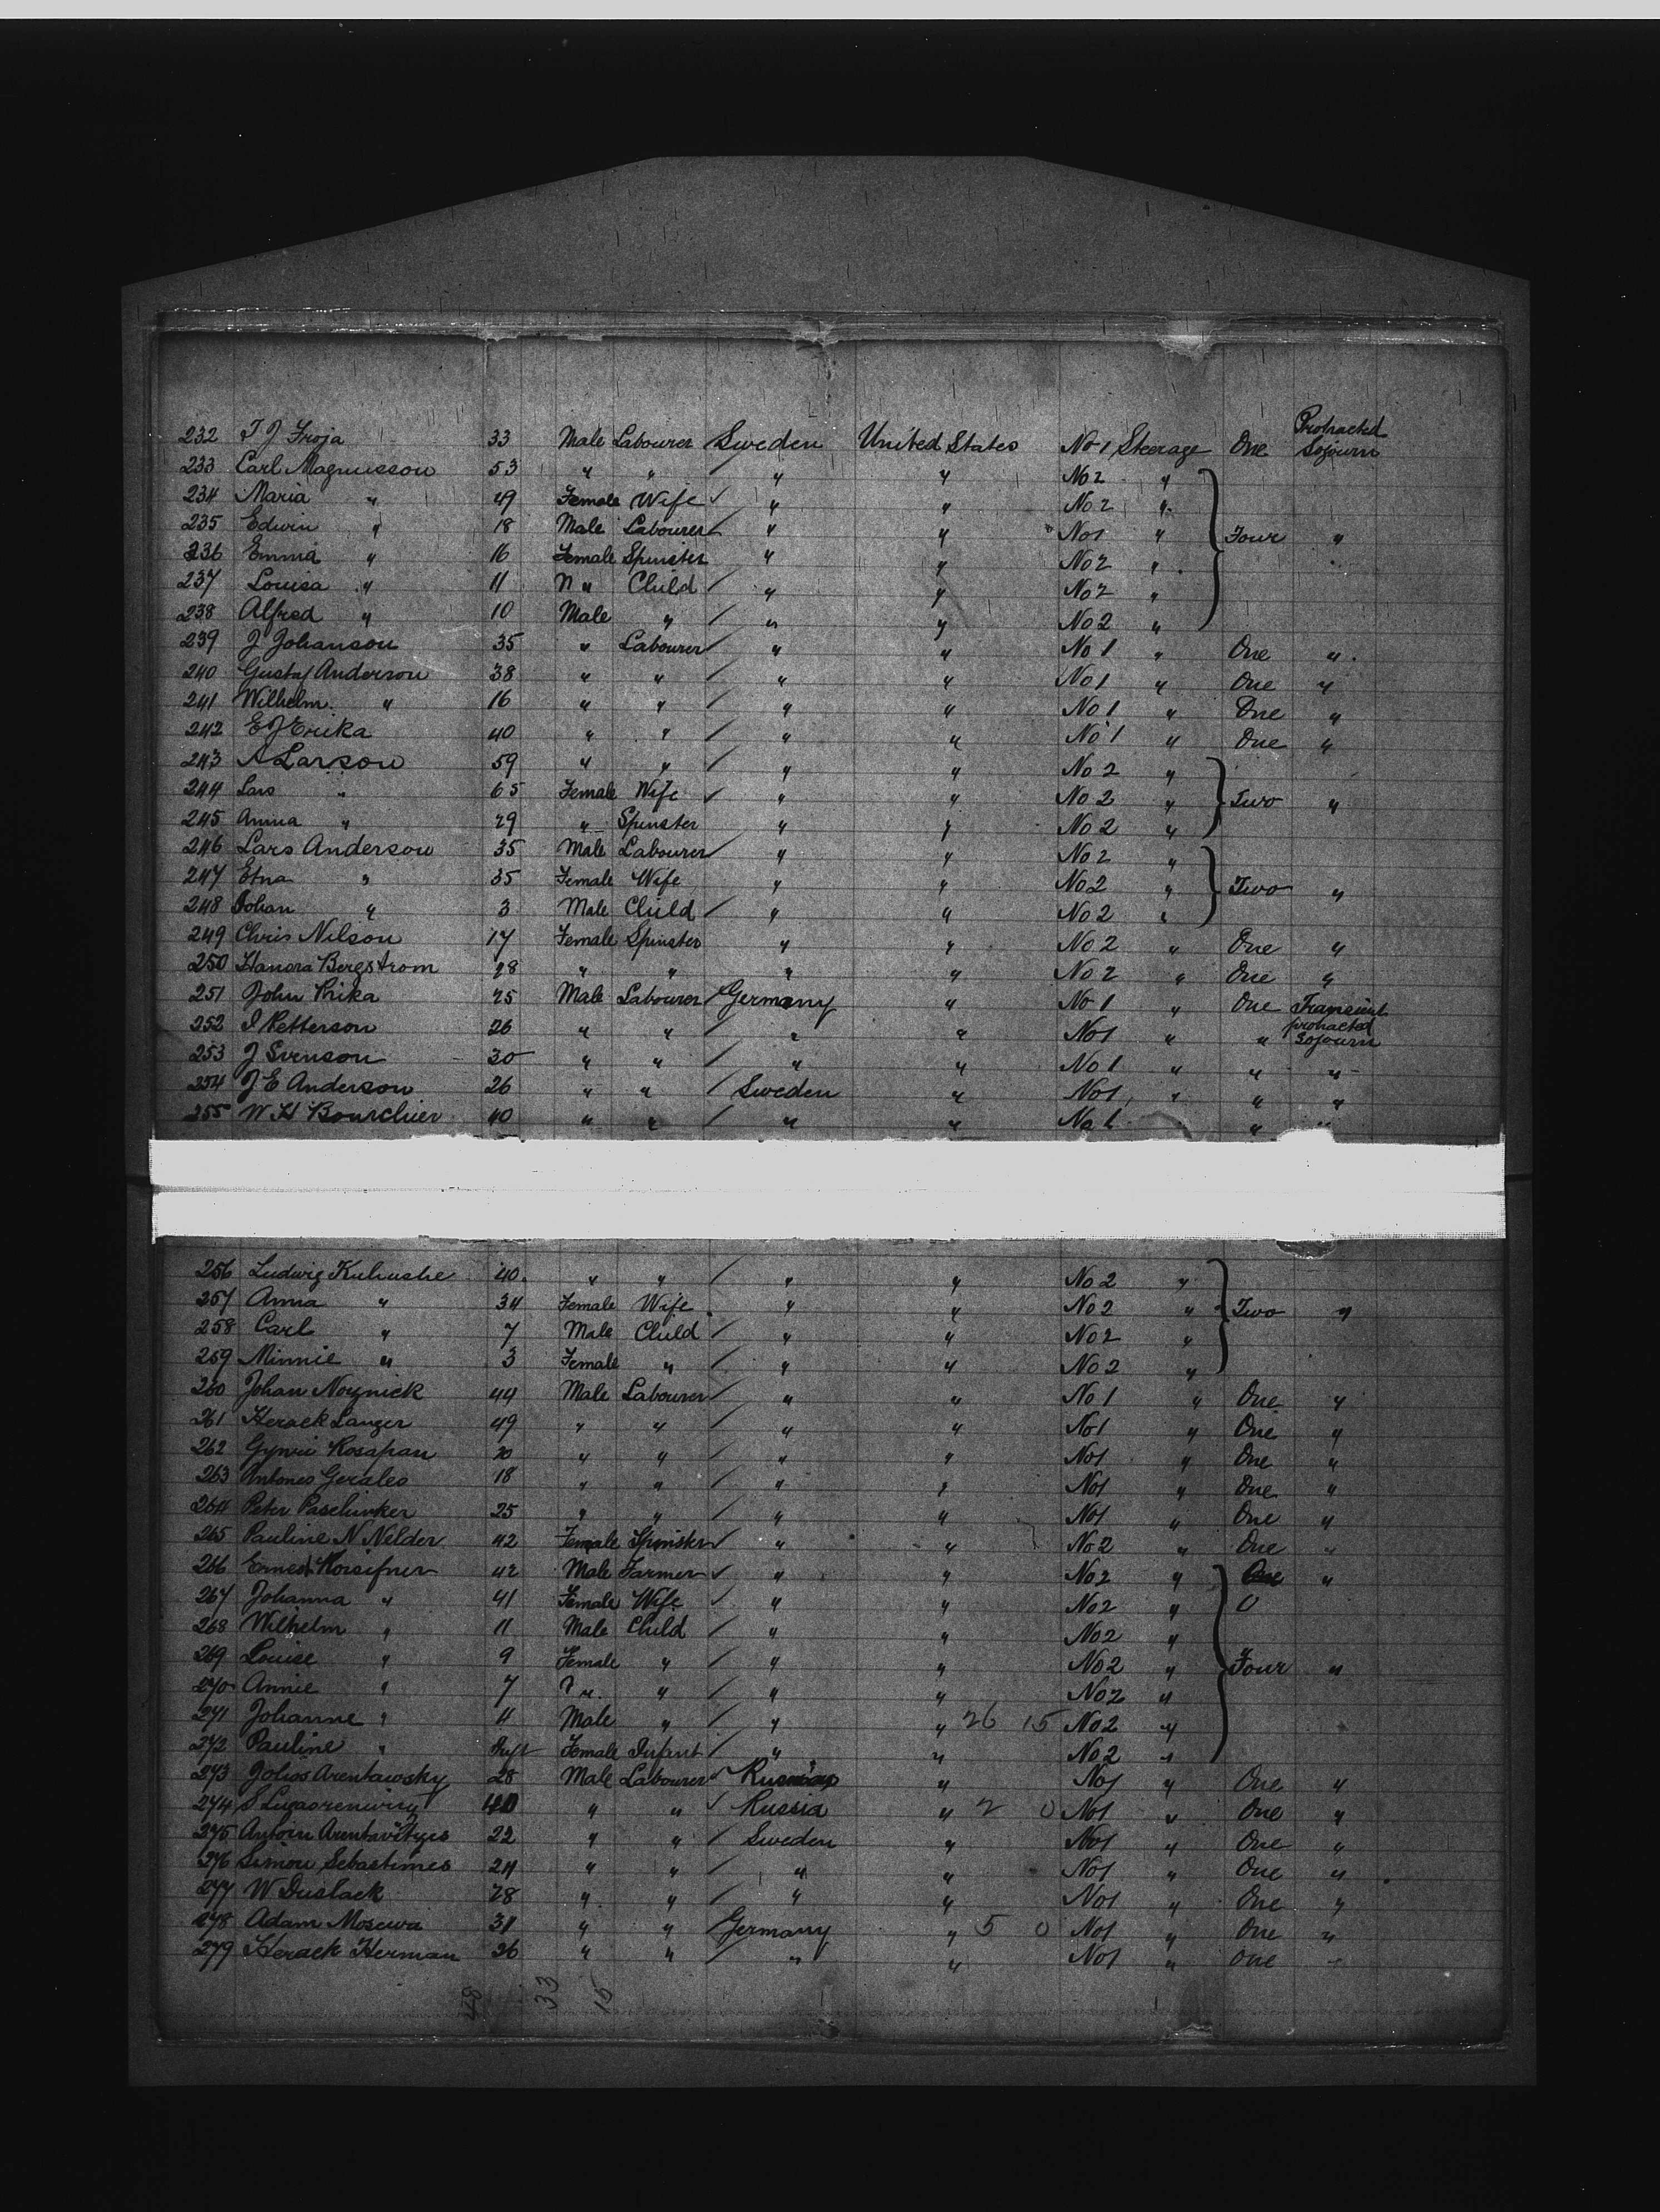 Protracted
232 T J Froja 33 Male Labourer Sweden United States No 1 Steerage One Sojourn
233 Carl Magnusson 53 " " " " No 2 "
234 Maria " 49 Female Wife " " No 2 "
235 Edwin " 18 Male Labourer " " No 1 " Four "
236 Emma " 16 Female Spinster " " No 2 "
237 Louisa " 11 " Child " " No 2 "
238 Alfred " 10 Male " " " No 2 "
239 J Johanson 35 " Labourer " " No 1 " One "
240 Gustaf Anderson 38 " " " " No 1 " One "
241 Wilhelm " 16 " " " " No 1 " One "
242 E J Erika 40 " " " " No 1 " One "
243 A Larson 59 " " " " No 2 "
244 Lars " 65 Female Wife " " No 2 " Two "
245 Anna " 29 " Spinster " " No 2 "
246 Lars Anderson 35 Male Labourer " " No 2 "
247 Etna " 35 Female Wife " " No 2 " Two "
248 Johan " 3 Male Child " " No 2 "
249 Chris Nilson 17 Female Spinster " " No 2 " One "
250 Hanora Bergstrom 28 " " " " No 2 " One "
251 John Prika 25 Male Labourer Germany " No 1 " One Transient
252 I Petterson 26 " " " " No 1 " " protracted Sojourn
253 J Svenson 30 " " " " No 1 " " "
254 J E Anderson 26 " " Sweden " No 1 " " "
255 W H Bourchier 40 " " " " No 1 " "
256 Ludwig 40 " " " " No 2 "
257 Anna " 34 Female Wife " " No 2 " Two "
258 Carl " 7 Male Child " " No 2 "
259 Minnie " 3 Female " " " No 2 "
260 Johan Noynick 44 Male Labourer " " No 1 " One "
261 Herack Langer 49 " " " " No 1 " One "
262 Kosapan 20 " " " " No 1 " One "
263 Antones Gerales 18 " " " " No 1 " One "
264 Peter 25 " " " " No 1 " One "
265 Pauline N Nelder 42 Female Spinster " " No 2 " One "
266 Ernest 42 Male Farmer " " No 2 " One "
267 Johanna " 41 Female Wife " " No 2 "
268 Wilhelm " 11 Male Child " " No 2 "
269 Louise " 9 Female " " " No 2 " Four "
270 Annie " 7 " " " " No 2 "
271 Johanne " 4 Male " " " 26 15 No 2 "
272 Pauline " Inft Female Infant " " No 2 "
273 Arentawsky 28 Male Labourer " No 1 " One "
274 S 40 " " Russia " 2 0 No 1 " One "
275 22 " " Sweden " No 1 " One "
276 Simon Sebastimes 24 " " " " No 1 " One "
277 W Duslack 28 " " " " No 1 " One "
278 Adam Mosewa 31 " " Germany " 5 0 No 1 " One "
279 Herack Herman 26 " " " " No 1 " One "
48 33 15